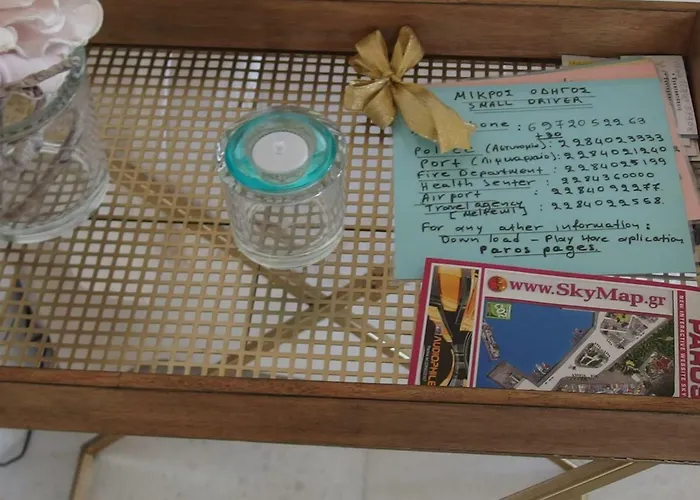 ΜΙΚΡΟΣ ΟΔΗΓΟΣ
SMALL DRIVER
one : 6972052263
+30
Police (Αστυνομία): 2284023333
Port (Λιμεναρχείο): 2284021240
Fire Department : 2284025199
Health Senter : 2284360000
Airport : 2284092277.
Travel agency : 2284022568.
For any other information:
Down load - Play store application
Paros pages.
www.SkyMap.gr
AUDIOPHILE
PAROS
NEW INTERACTIVE WEBSITE SKY